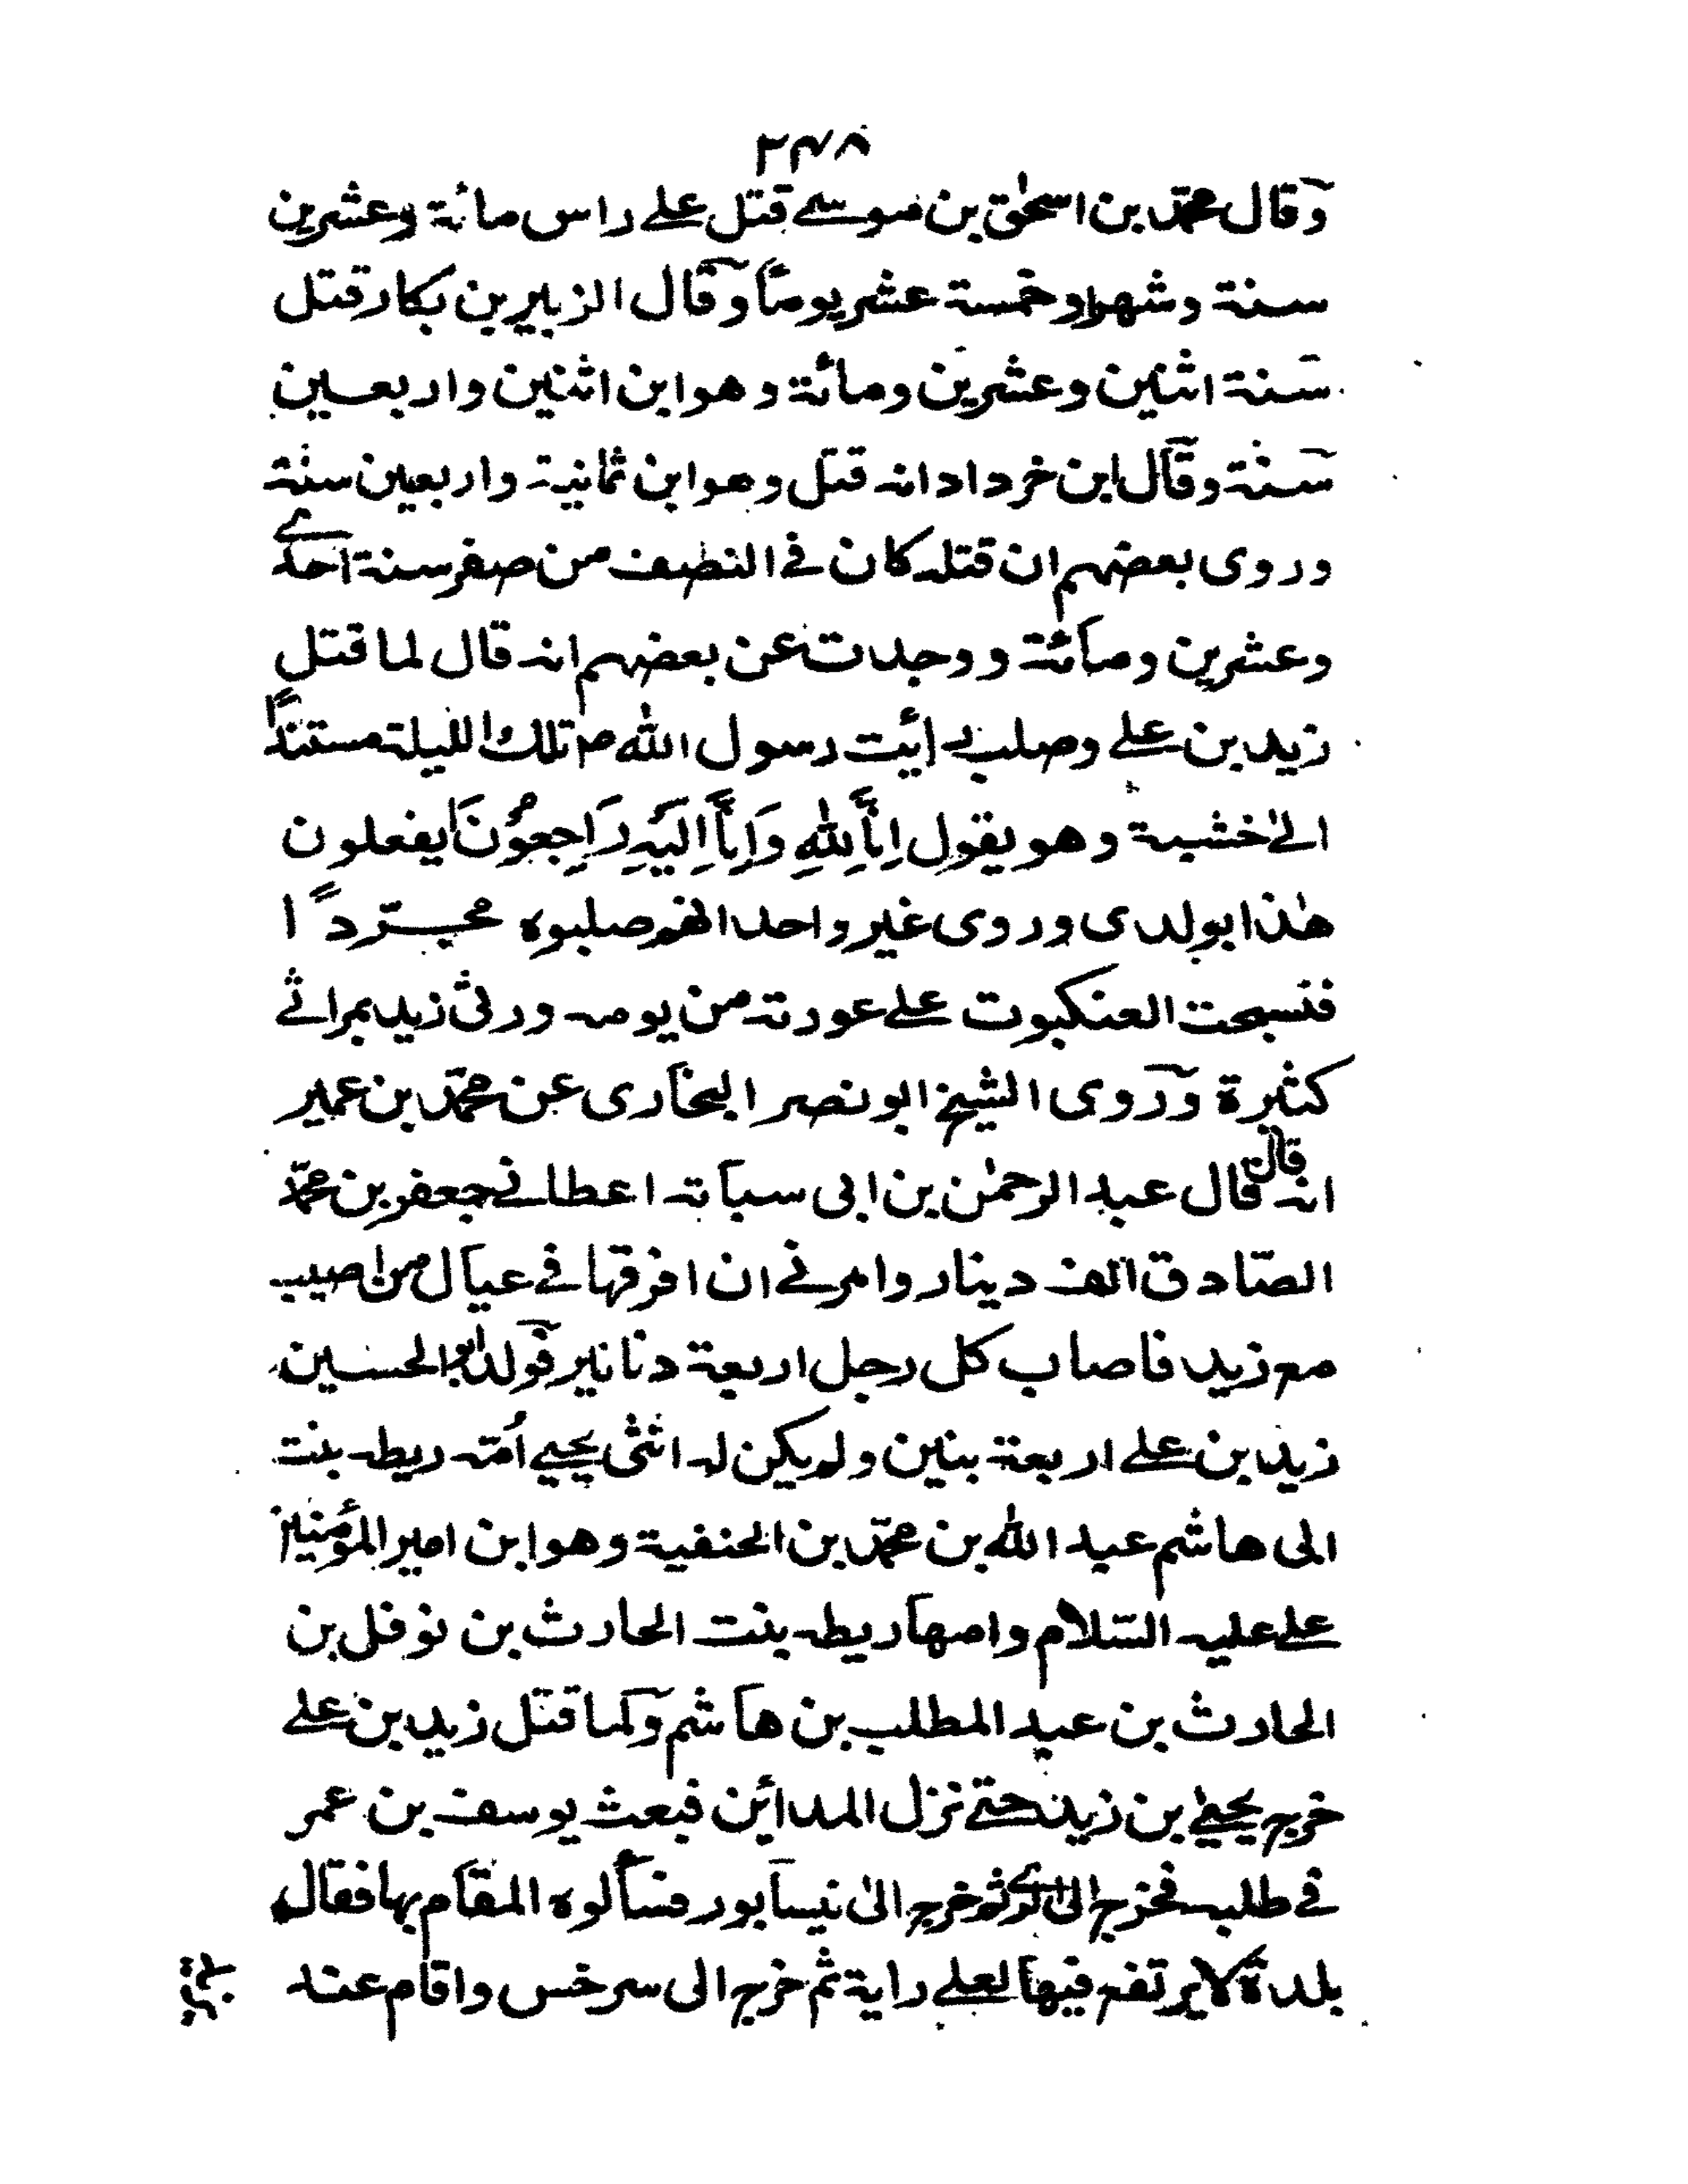 ٢٣٨
وقال محمّد بن اسحٰق بن موسے قتل علے راس مائة وعشرين
سنة وشهرا وخمسة عشر يومًا وقال الزبير بن بكار قتل
سنة اثنين وعشرين ومائة وهو ابن اثنين واربعين
سنة وقال ابن خرداد انه قتل وهو ابن ثمانية واربعين سنة
وروى بعضهم ان قتله كان فے النصف من صفر سنة احدے
وعشرين ومائة ووجدت عن بعضهم انه قال لما قتل
زيد بن علے وصلب رأيت رسول الله ص تلك الليلة مستندًا
الىٰ خشبة وهو يقول اِنَّا لِلّٰهِ وَاِنَّا اِلَيْهِ رَاجِعُوْنَ ايفعلون
هٰذا بولدى وروى غير واحد انهم صلبوه مجرّدًا
فنسجت العنكبوت علے عورته من يومه ورثى زيد بمراثے
كثيرة وروى الشيخ ابو نصر البخارى عن محمّد بن عمير
انه قال قال عبد الرحمٰن بن ابى سبابة اعطانے جعفر بن محمّد
الصّادق الف دينار وامرنے ان افرقها فے عيال من اصيب
مع زيد فاصاب كل رجل اربعة دنانير فولد ابو الحسين
زيد بن علے اربعة بنين ولم يكن له انثى يحيى اُمّه ريطه بنت
ابى هاشم عبد الله بن محمّد بن الحنفية وهو ابن امير المؤمنين
علے عليه السّلام وامها ريطه بنت الحارث بن نوفل بن
الحارث بن عبد المطلب بن هاشم ولما قتل زيد بن علے
خرج يحيىٰ بن زيد حتے نزل المدائن فبعث يوسف بن عمر
فے طلبه فخرج الى الرے ثم خرج الىٰ نيسابور فسألوه المقام بها فقال
بلدة لا يرتفع فيها لعلے راية ثم خرج الى سرخس واقام عند